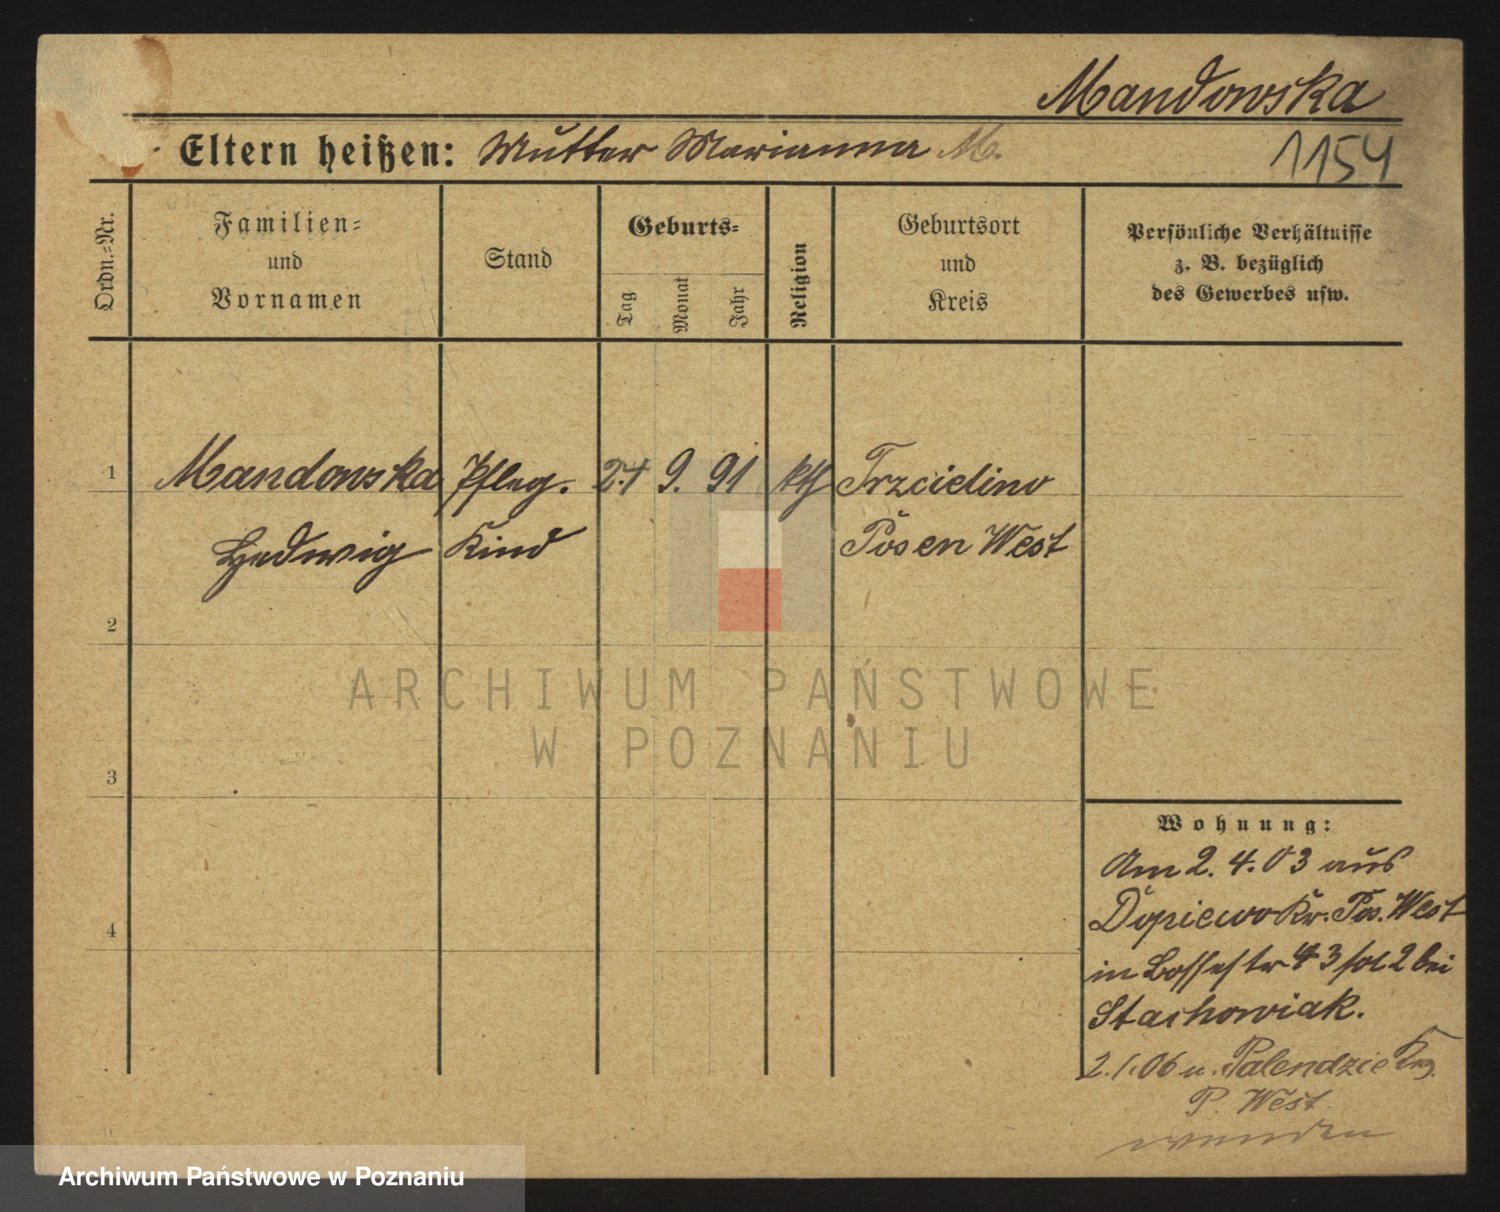 Mandowska
Eltern heißen: Mutter Marianna M.
1154
Ordn.-Nr.
Familien-
und
Vornamen
Stand
Geburts-
Tag
Monat
Jahr
Religion
Geburtsort
und
Kreis
Persönliche Verhältnisse
z. B. bezüglich
des Gewerbes usw.
1 Mandowska Pfleg. 24 9. 91 kth Trzcielino
Hedwig Kind Posen West
2
3
4
ARCHIWUM PAŃSTWOWE
W POZNANIU
Wohnung:
Am 2. 4. 03 aus
Dopiewo Kr. Pos. West
in 43 2 bei
Stachowiak.
2. 1. 06 n. Palendzie
P. West
wenden
Archiwum Państwowe w Poznaniu